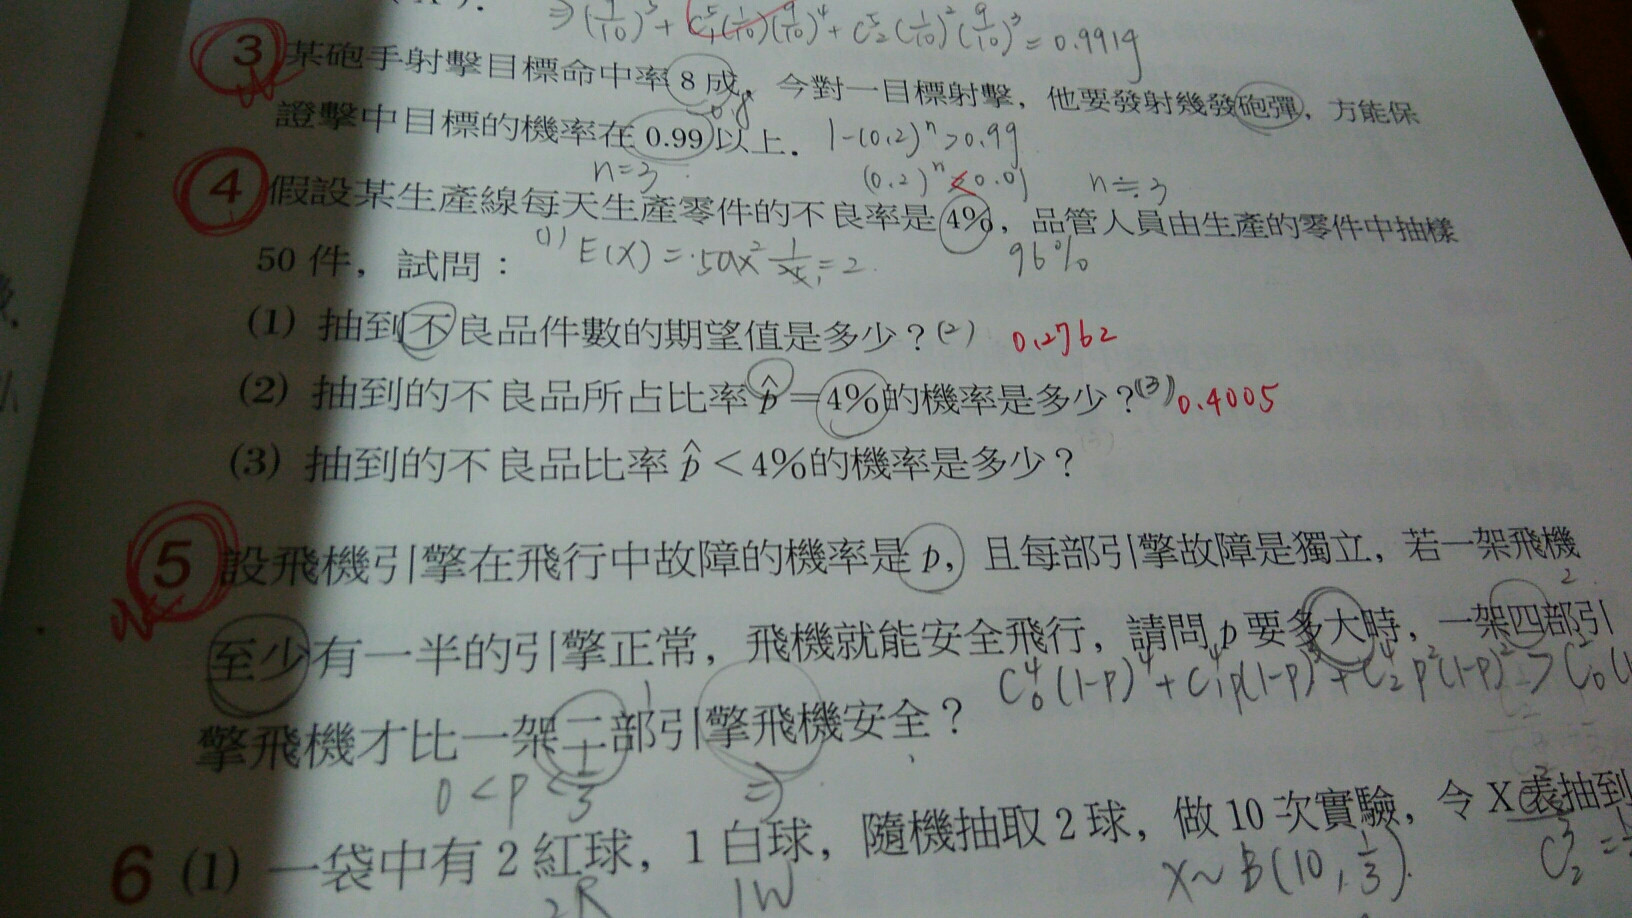 ⇒(9/10)^5 + C^5_1(1/10)(9/10)^4 + C^5_2(1/10)^2(9/10)^3 = 0.9919
3 某砲手射擊目標命中率8成，今對一目標射擊，他要發射幾發砲彈，方能保
0.8
證擊中目標的機率在0.99以上． 1-(0.2)^n>0.99
n=3 (0.2)^n<0.01 n≒3
4 假設某生產線每天生產零件的不良率是4%，品管人員由生產的零件中抽樣
50件，試問： (1) E(X)=50x =2 96%
(1) 抽到不良品件數的期望值是多少？(2) 0.2762
(2) 抽到的不良品所占比率p̂=4%的機率是多少？(3) 0.4005
(3) 抽到的不良品比率p̂<4%的機率是多少？
5 設飛機引擎在飛行中故障的機率是p，且每部引擎故障是獨立，若一架飛機
2
至少有一半的引擎正常，飛機就能安全飛行，請問p要多大時，一架四部引
C^4_0(1-p)^4+C^4_1p(1-p)^3+C^4_2p^2(1-p)^2>C^2_0(1
1
擎飛機才比一架二部引擎飛機安全？
0<p<1/3 ⇒
6 (1) 一袋中有2紅球，1白球，隨機抽取2球，做10次實驗，令X表抽到
2R 1W X~B(10,1/3) C^3_2=